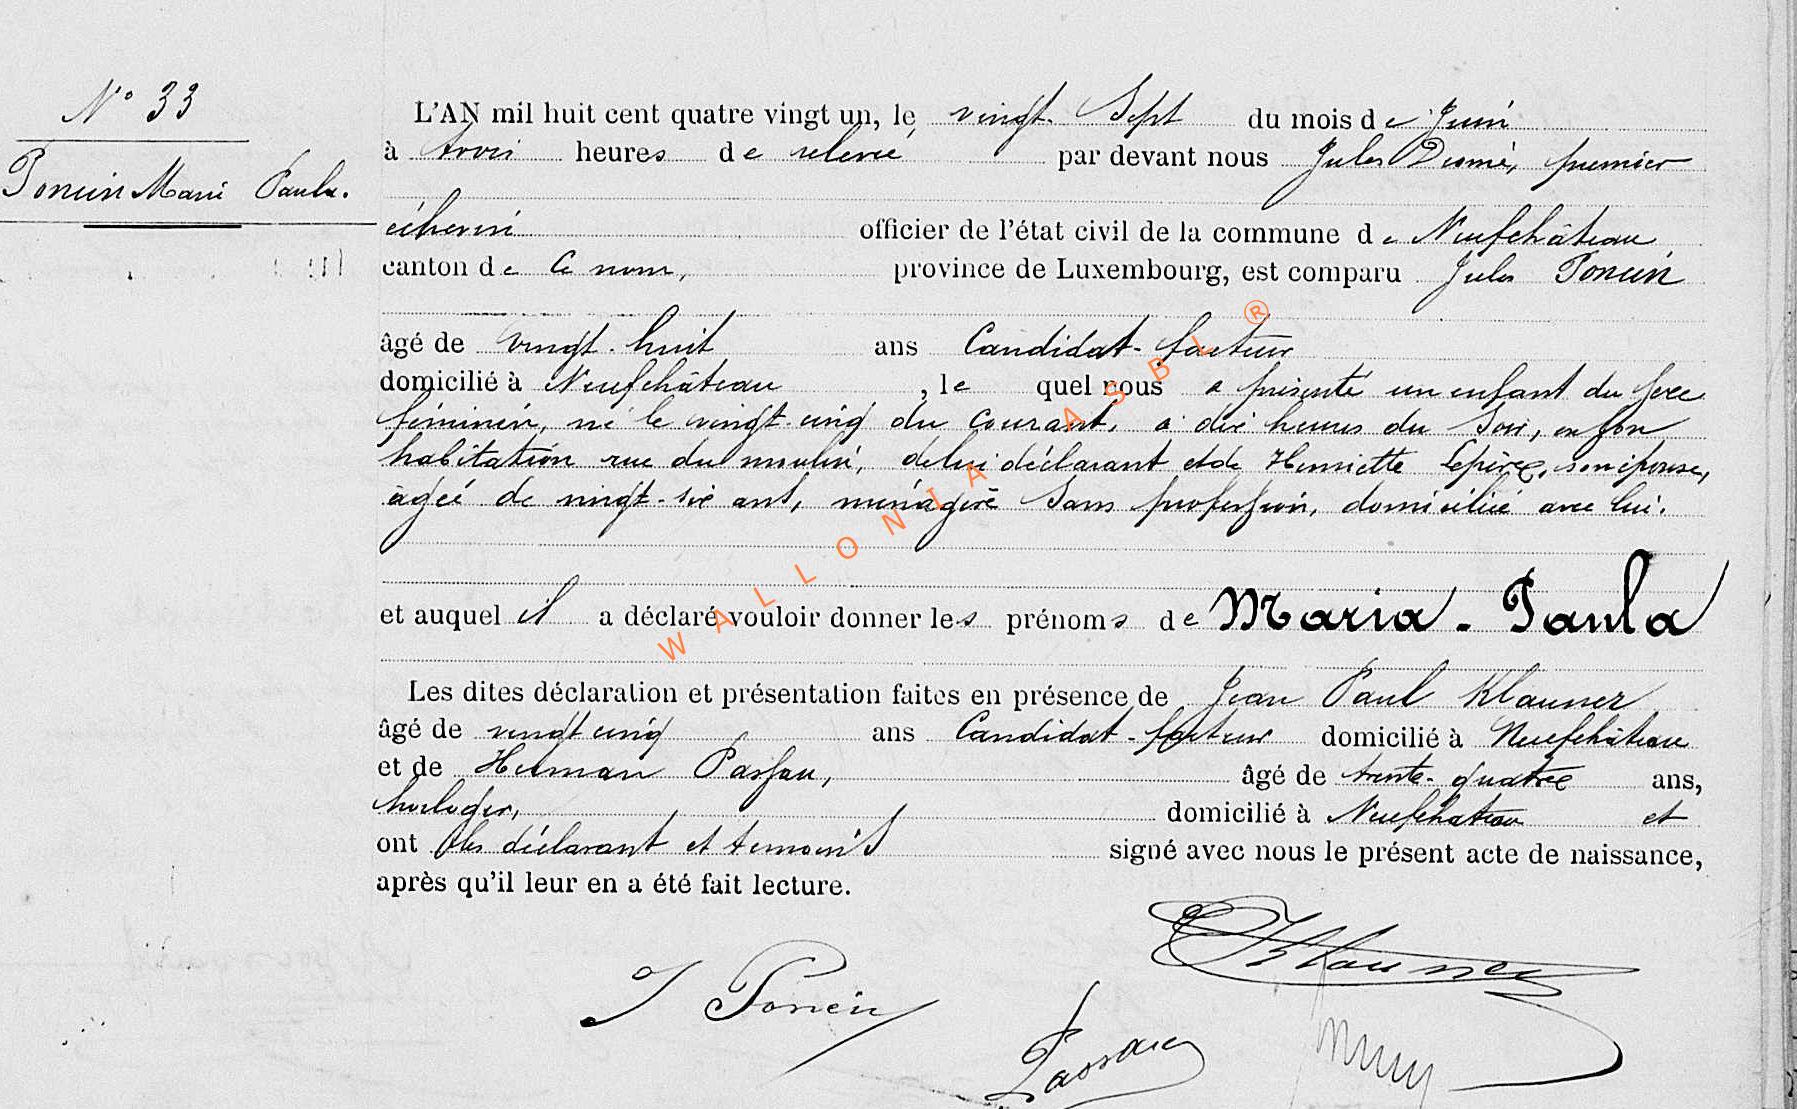 N° 33
Poncin Marie Paula.
L'AN mil huit cent quatre vingt un, le vingt-Sept du mois de Juin
à trois heures de relevée par devant nous Jules Desmé, premier
échevin officier de l'état civil de la commune de Neufchâteau
canton de ce nom, province de Luxembourg, est comparu Jules Poncin
âgé de vingt-huit ans Candidat-facteur
domicilié à Neufchâteau, lequel nous a présenté un enfant du sexe
féminin, né le vingt-cinq du courant, à dix heures du Soir, en son
habitation rue du moulin, de lui déclarant et de Henriette son épouse,
âgée de vingt-six ans, ménagère Sans profession, domiciliée avec lui.
et auquel il a déclaré vouloir donner les prénoms de Maria-Paula
Les dites déclaration et présentation faites en présence de Jean Paul Klauner
âgé de vingt cinq ans Candidat-facteur domicilié à Neufchâteau
et de Herman Passau, âgé de trente-quatre ans,
horloger, domicilié à Neufchateau et
ont les déclarant et temoins signé avec nous le présent acte de naissance,
après qu'il leur en a été fait lecture.
Klauner
J Poncin
Passau
WALLONIA ASBL ®